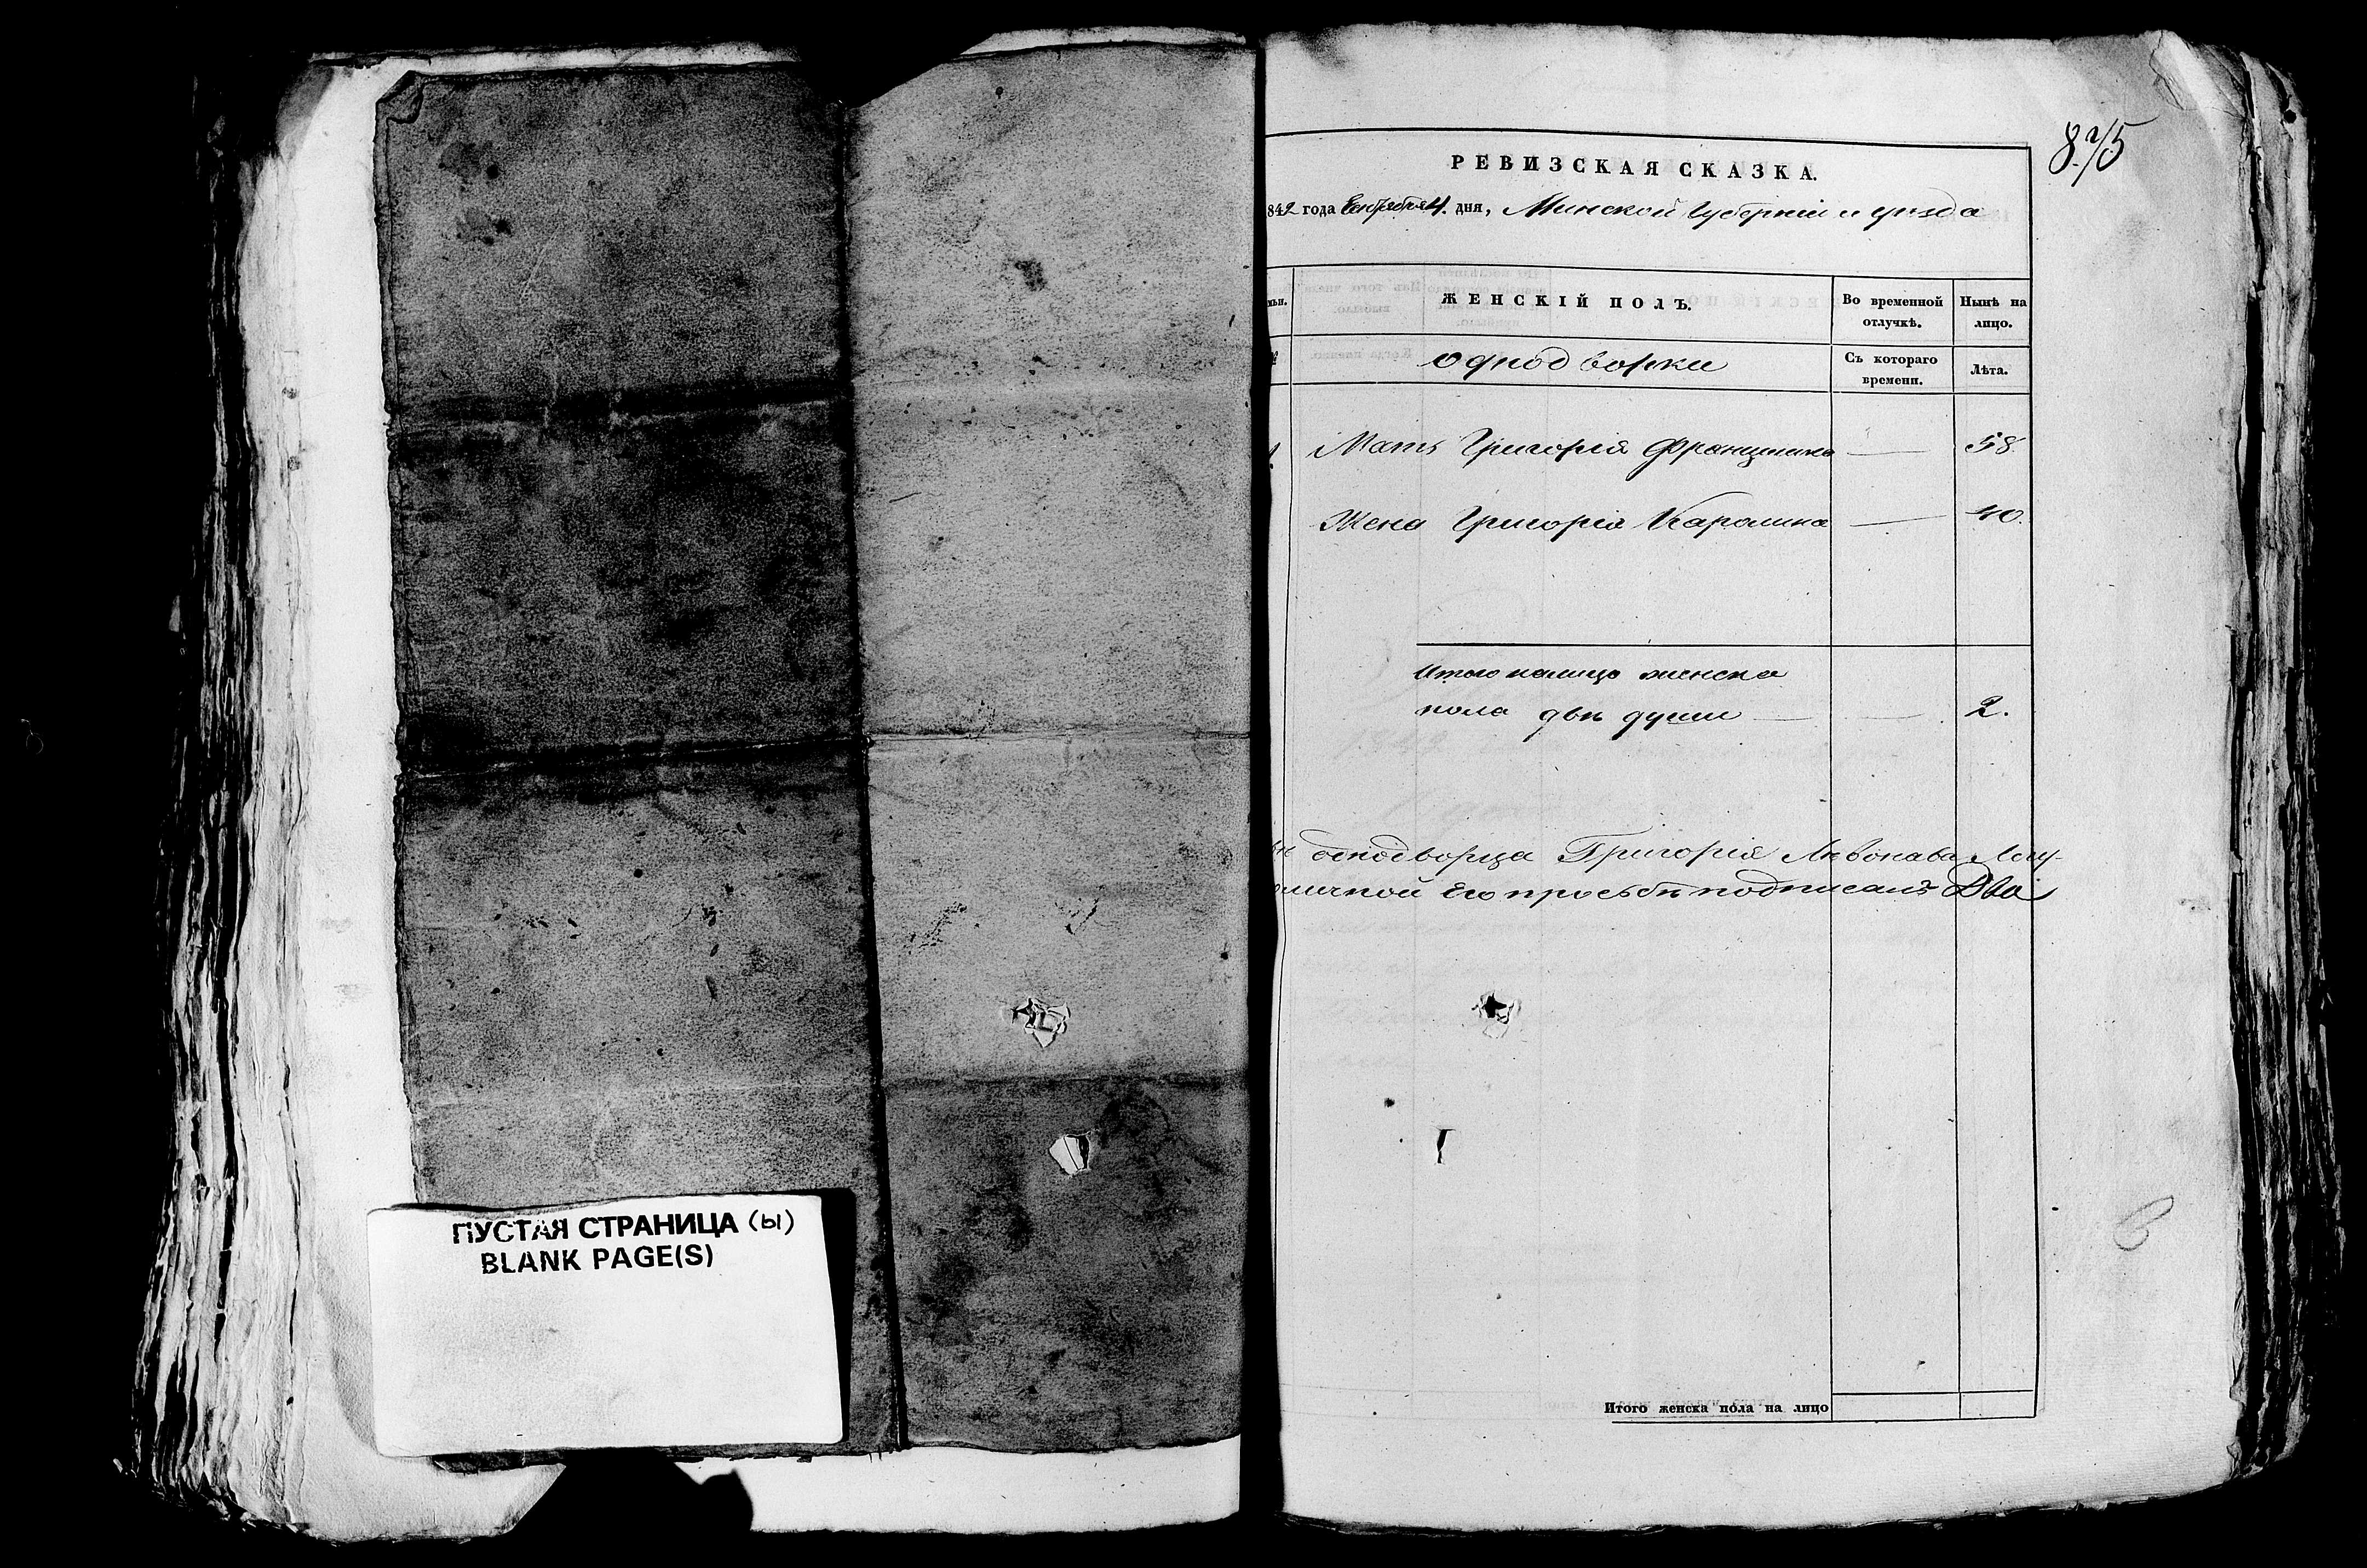 ПУСТАЯ СТРАНИЦА (ы)
BLANK PAGE(S)
РЕВИЗСКАЯ СКАЗКА.
842 года Сентября 4. дня, Минской Губерніи и уезда
ЖЕНСКІЙ ПОЛЪ.
Во временной отлучкѣ.
Нынѣ на лицо.
однодворки
Съ котораго времени.
Лѣта.
Мать Григорія Францишка — 58.
Жена Григорія Каролина — 40.
Итого налицо женска
пола двѣ души — — 2.
однодворца Григорія
личной Его просьбѣ подписалъ Два
Итого женска пола на лицо